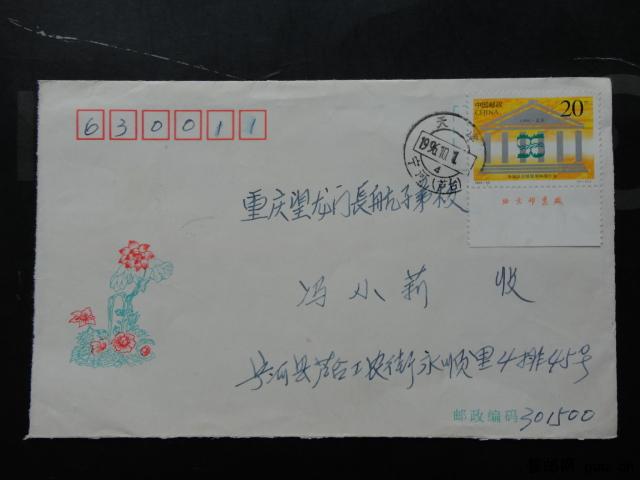 630011
中国邮政
CHINA
20
天津
1996.10.7
4
宁河(芦台)
北京邮票厂
重庆望龙门長航子弟校
冯小莉 收
宁河县芦台工农街永顺里4排45号
邮政编码 301500